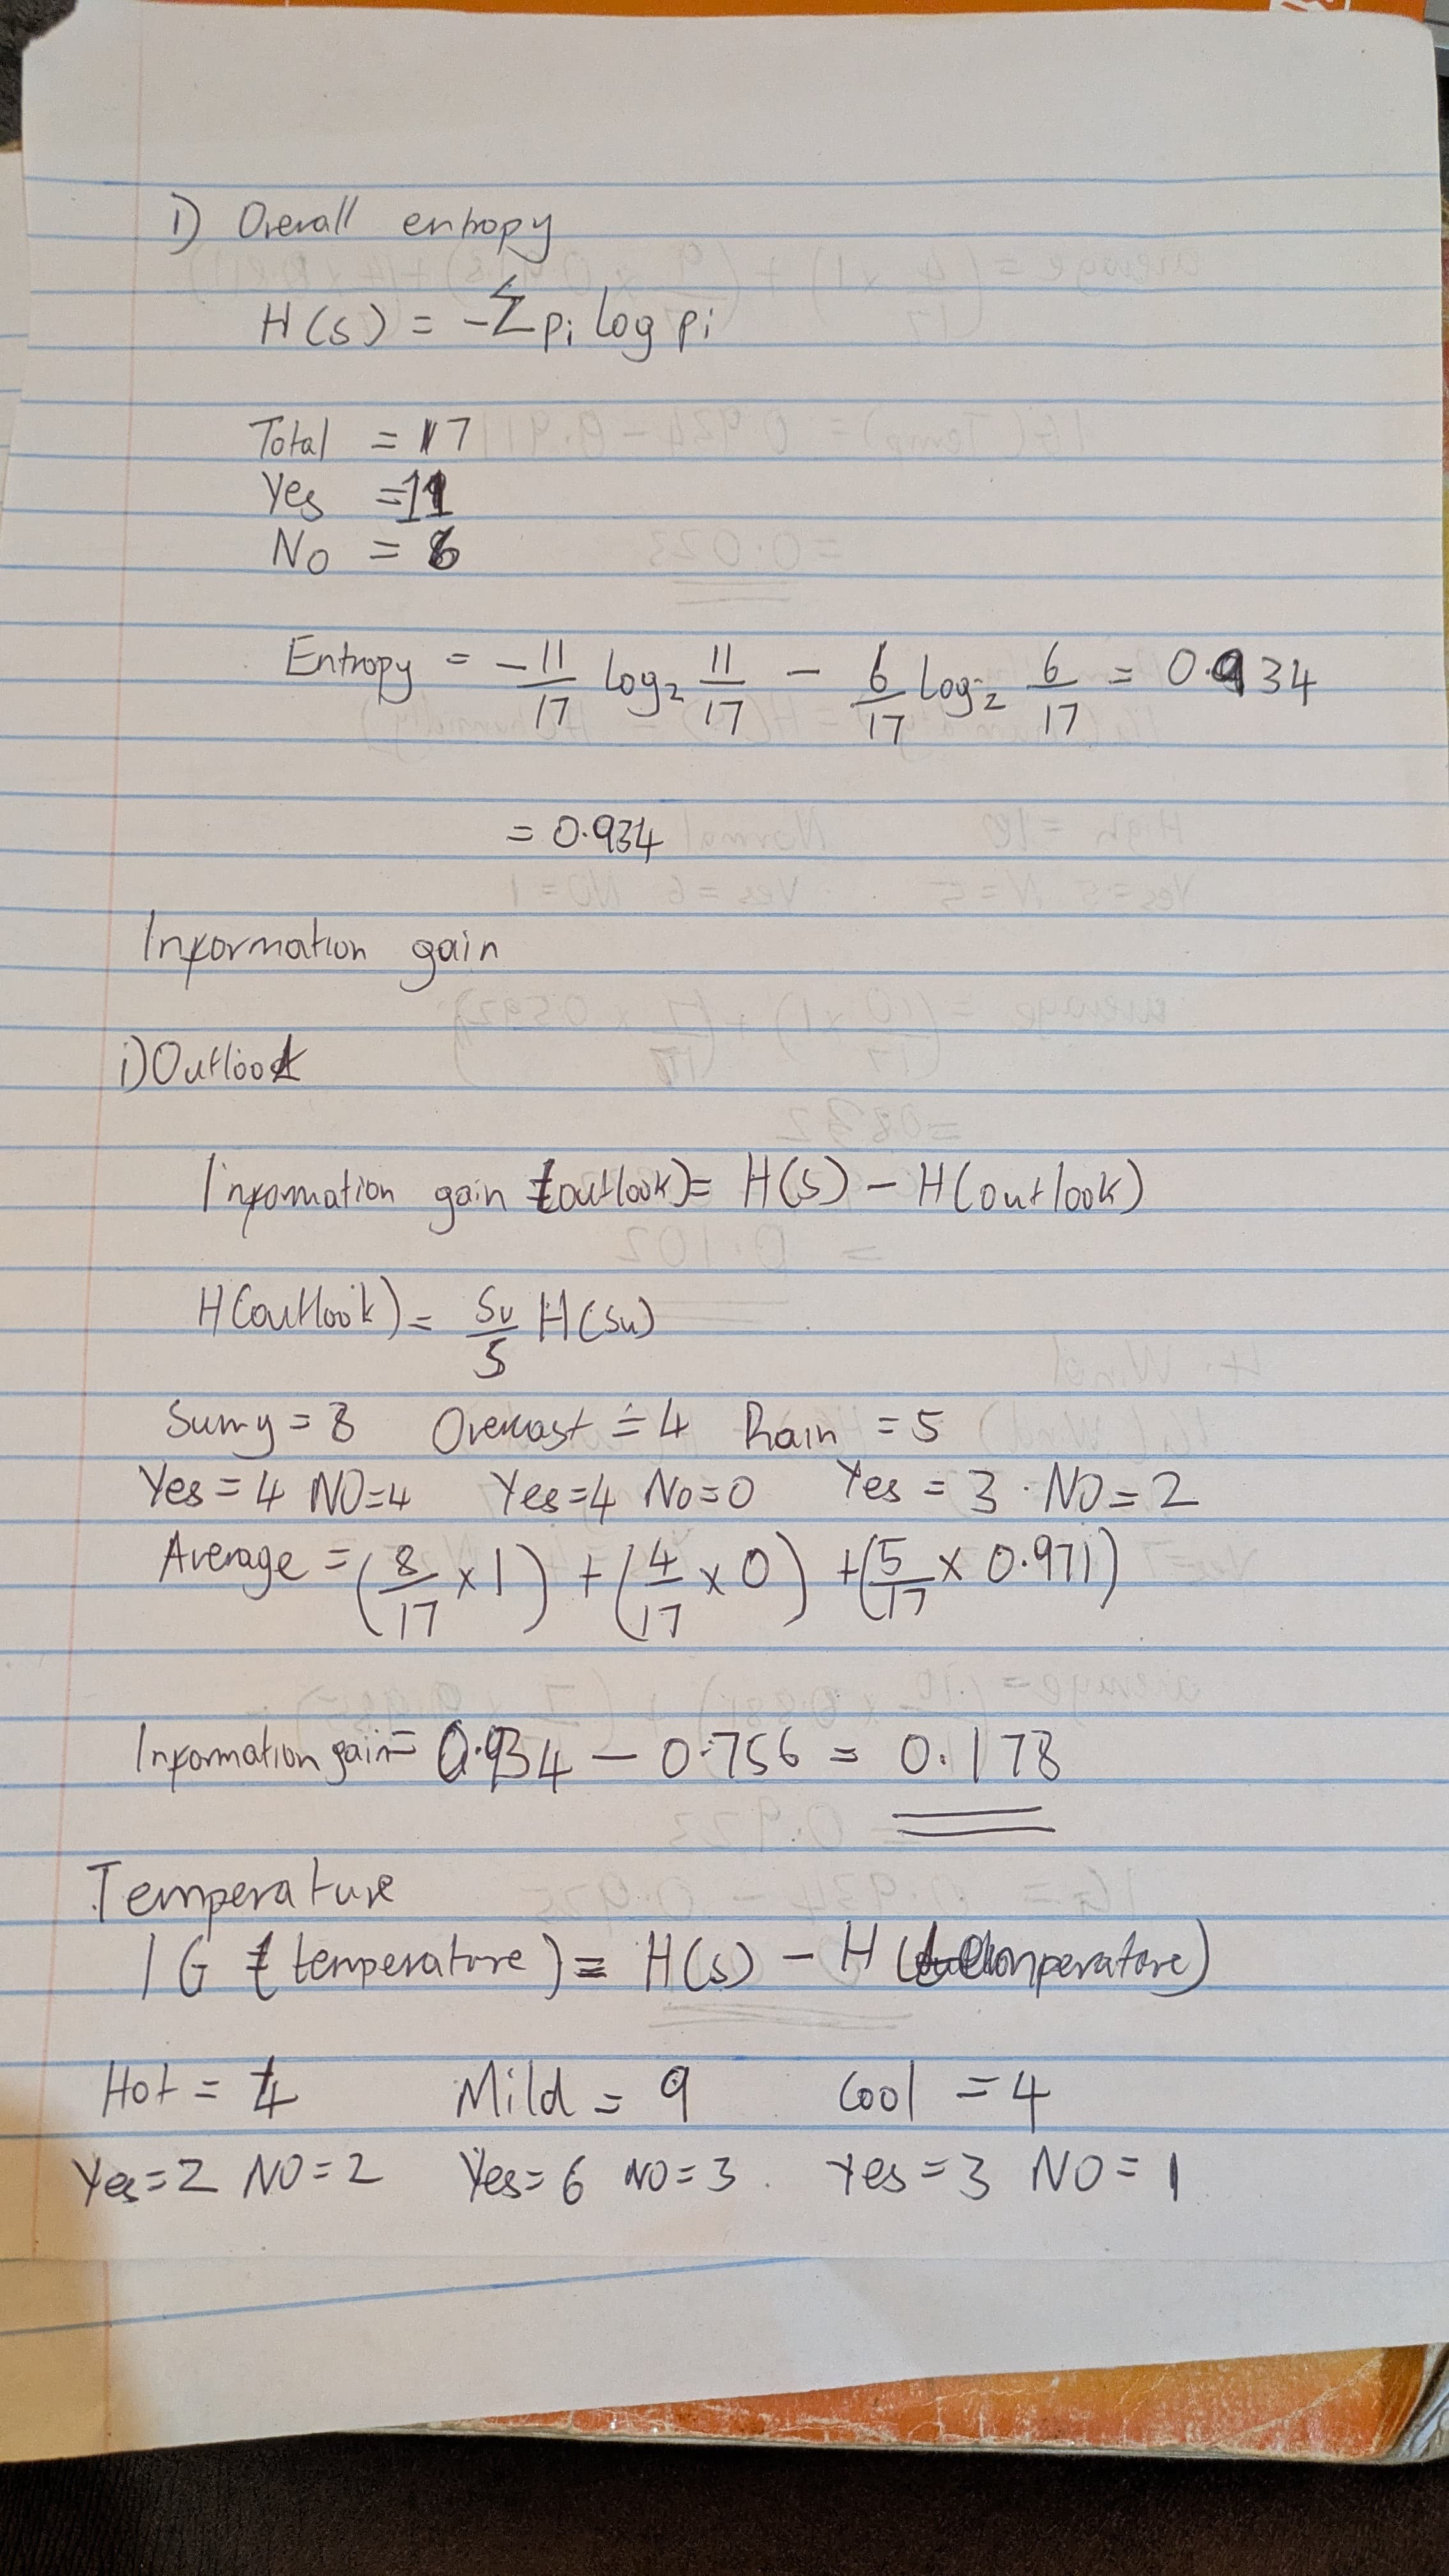 1) Overall entropy
H(s) = -∑pi log pi
Total = 17
Yes = 11
No = 6
Entropy = -11/17 log2 11/17 - 6/17 log2 6/17 = 0.934
= 0.934
Information gain
i) Outlook
Information gain (outlook) = H(s) - H(outlook)
H(outlook) = Sv/S H(Su)
Sunny = 8 Overcast = 4 Rain = 5
Yes = 4 NO=4 Yes=4 No=0 Yes = 3 . NO = 2
Average = (8/17 × 1) + (4/17 × 0) + (5/17 × 0.971)
Information gain = 0.934 - 0.756 = 0.178
Temperature
IG (temperature) = H(s) - H(temperature)
Hot = 4 Mild = 9 Cool = 4
Yes=2 NO=2 Yes=6 NO=3 . Yes=3 NO=1